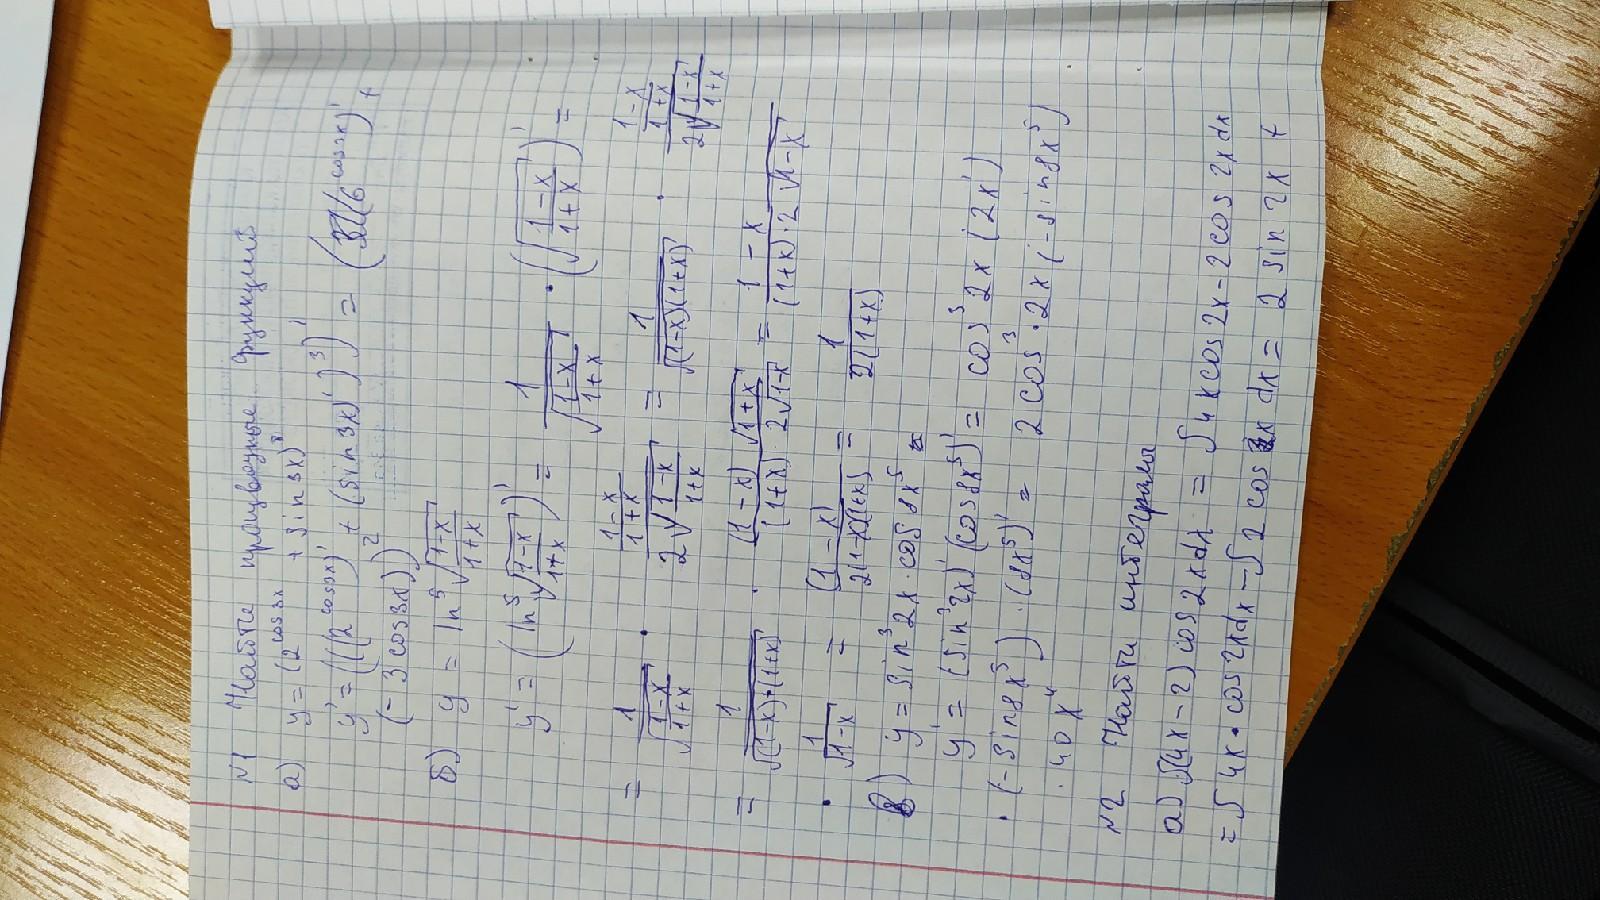 №1 Найти производные функций
а) y = (2^cos3x + sin3x)^8
y' = (((2^cos3x)' + (sin3x)')^3)' = ( 6^cos3x)' +
(-3cos3x))^2
б) y = ln^5 √((1-x)/(1+x))
y' = (ln^5 √((1-x)/(1+x)))' = 1/√((1-x)/(1+x)) · (√((1-x)/(1+x)))' =
= 1/√((1-x)/(1+x)) · ((1-x)/(1+x))/(2√((1-x)/(1+x))) = 1/√((1-x)(1+x)) · ((1-x)/(1+x))/(2√((1-x)/(1+x)))
= 1/√((1-x)+(1+x)) · ((1-x)√(1+x))/((1+x) 2√(1-x)) = (1-x)/((1+x)·2√(1-x))
· 1/√(1-x) = (1-x)/(2(1-x)(1+x)) = 1/(2(1+x))
в) y = sin^3 2x · cos8x^5
y' = (sin^3 2x)' (cos8x^5)' = cos^3 2x (2x')
· (-sin8x^5) · (8x^5)' = 2cos^3 · 2x (-sin8x^5)
· 40x^4
№2 Найти интегралы
а) ∫(4x-2)cos2xdx = ∫4xcos2x-2cos2xdx
= ∫4x·cos2xdx - ∫2cos2xdx = 2sin2x +